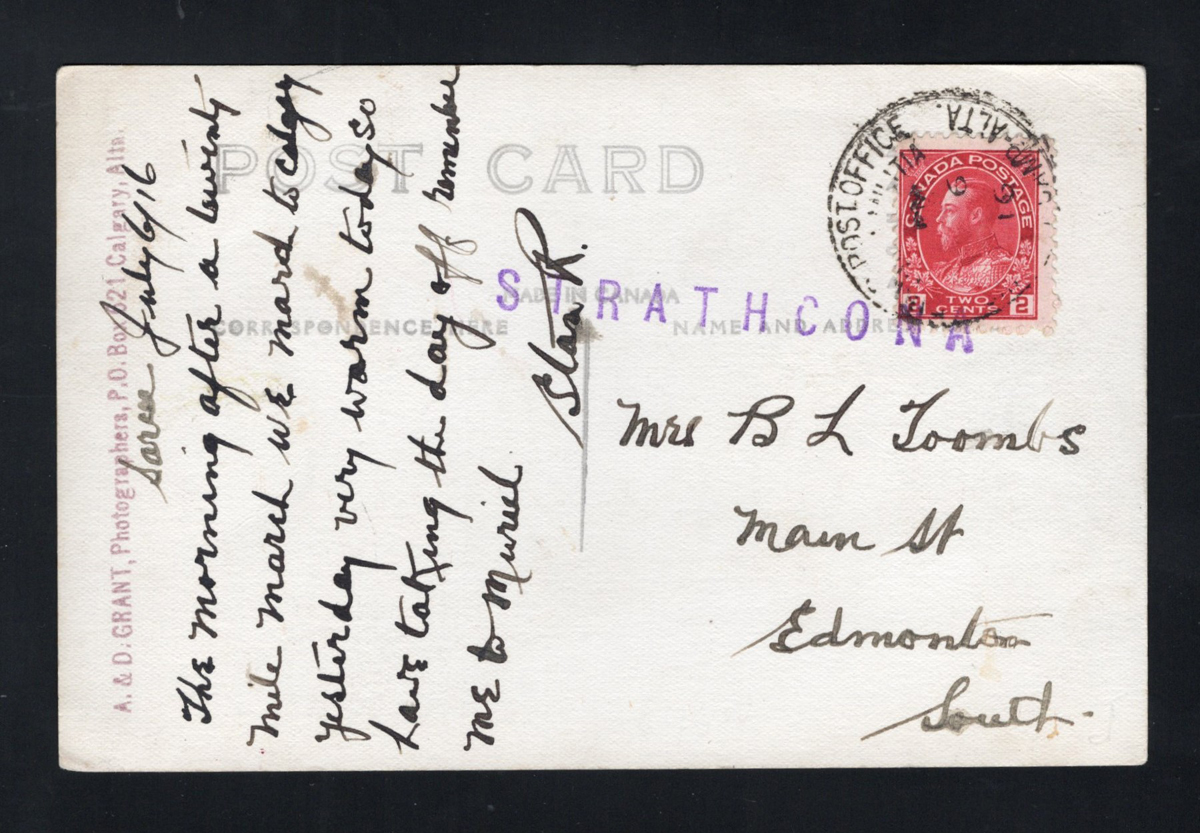 A. & D. GRANT, Photographers, P.O. Box 521, Calgary, Alta.
POST CARD
MADE IN CANADA
CORRESPONDENCE HERE
NAME AND ADDRESS
Sarcee July 6/16
The morning after a twinty
mile march we mard to calgary
yesterday very warm today so
have taking the day off remember
me to Muriel
Stan R.
STRATHCONA
POST OFFICE
ALTA.
CANADA POSTAGE
TWO
CENTS
2 2
Mrs B L Toombs
Main St
Edmonton
South.